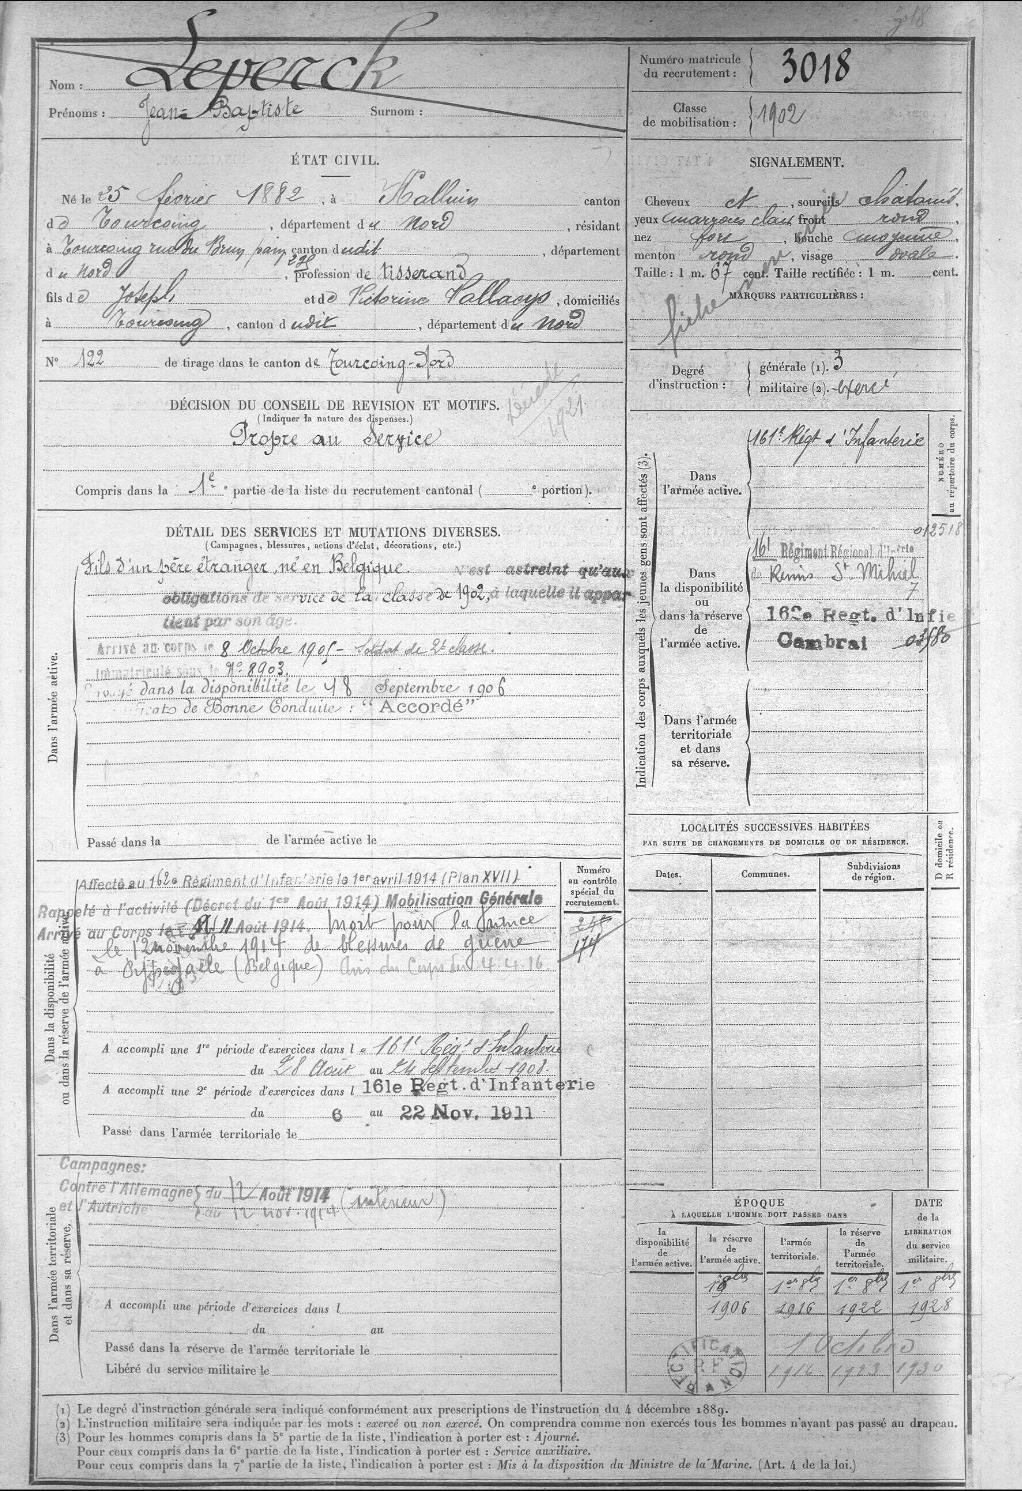 Nom : Leperck
Prénoms : Jean-Baptiste Surnom :
Numéro matricule du recrutement : 3018
Classe de mobilisation : 1902
ÉTAT CIVIL.
Né le 25 février 1882, à Halluin canton
d e Tourcoing, département du Nord, résidant
à Tourcoing rue du Brun pain, canton dudit, département
du Nord, profession de tisserand
fils de Joseph et de Victorine Vallaeys, domiciliés
à Tourcoing, canton dudit, département du Nord
N° 122 de tirage dans le canton de Tourcoing-Nord
DÉCISION DU CONSEIL DE REVISION ET MOTIFS.
(Indiquer la nature des dispenses.)
Propre au Service
Compris dans la 1e partie de la liste du recrutement cantonal ( e portion).
1921
SIGNALEMENT.
Cheveux et, sourcils châtains,
yeux marrons clair front rond,
nez fort, bouche moyenne,
menton rond, visage ovale.
Taille : 1 m. 67 cent. Taille rectifiée : 1 m. cent.
MARQUES PARTICULIÈRES :
Degré d'instruction :
générale (1). 3
militaire (2). exercé
DÉTAIL DES SERVICES ET MUTATIONS DIVERSES.
(Campagnes, blessures, actions d'éclat, décorations, etc.)
Dans l'armée active.
Fils d'un père étranger, né en Belgique. N'est astreint qu'aux
obligations de service de la classe de 1902, à laquelle il appar
tient par son âge.
Arrivé au corps le 8 Octobre 1905 - Soldat de 2e classe.
Immatriculé sous le N° 8903.
dans la disponibilité le 18 Septembre 1906
de Bonne Conduite : "Accordé"
Passé dans la de l'armée active le
Indication des corps auxquels les jeunes gens sont affectés (3).
NUMÉRO au répertoire du corps.
Dans l'armée active.
161e Régt d'Infanterie
Dans la disponibilité ou dans la réserve de l'armée active.
012518
161 Régiment Régional d'Infrie
de Reims St Mihiel
7
162e Regt. d'Infie
Cambrai 03580
Dans l'armée territoriale et dans sa réserve.
LOCALITÉS SUCCESSIVES HABITÉES
PAR SUITE DE CHANGEMENTS DE DOMICILE OU DE RÉSIDENCE.
D domicile ou R résidence.
Dates. Communes. Subdivisions de région.
Dans la disponibilité ou dans la réserve de l'armée active
Numéro au contrôle spécial du recrutement.
174
Affecté au 162e Régiment d'Infanterie le 1er avril 1914 (Plan XVII)
Rappelé à l'activité (Décret du 1er Août 1914) Mobilisation Générale
Arrivé au Corps le 11 Août 1914. Mort pour la France
le 12 novembre 1914 de blessures de guerre
à (Belgique) Avis du Corps du 4.4.16
A accompli une 1re période d'exercices dans le 161e Régt d'Infanterie
du 28 Août au 24 Septembre 1908.
A accompli une 2e période d'exercices dans l 161e Regt. d'Infanterie
du 6 au 22 Nov. 1911
Passé dans l'armée territoriale le
Dans l'armée territoriale et dans sa réserve.
Campagnes:
Contre l'Allemagne du 12 Août 1914
et l'Autriche au 12 nov. 1914 (intérieur)
A accompli une période d'exercices dans l
du au
Passé dans la réserve de l'armée territoriale le
Libéré du service militaire le
ÉPOQUE
À LAQUELLE L'HOMME DOIT PASSER DANS
DATE de la LIBÉRATION du service militaire.
la disponibilité de l'armée active. la réserve de l'armée active. l'armée territoriale. la réserve de l'armée territoriale.
1er 8bre 1er 8bre 1er 8bre
1906 1916 1922 1928
1 Octobre
1916 1923 1930
RECTIFICATION R.F.
(1) Le degré d'instruction générale sera indiqué conformément aux prescriptions de l'instruction du 4 décembre 1889.
(2) L'instruction militaire sera indiquée par les mots : exercé ou non exercé. On comprendra comme non exercés tous les hommes n'ayant pas passé au drapeau.
(3) Pour les hommes compris dans la 5e partie de la liste, l'indication à porter est : Ajourné.
Pour ceux compris dans la 6e partie de la liste, l'indication à porter est : Service auxiliaire.
Pour ceux compris dans la 7e partie de la liste, l'indication à porter est : Mis à la disposition du Ministre de la Marine. (Art. 4 de la loi.)